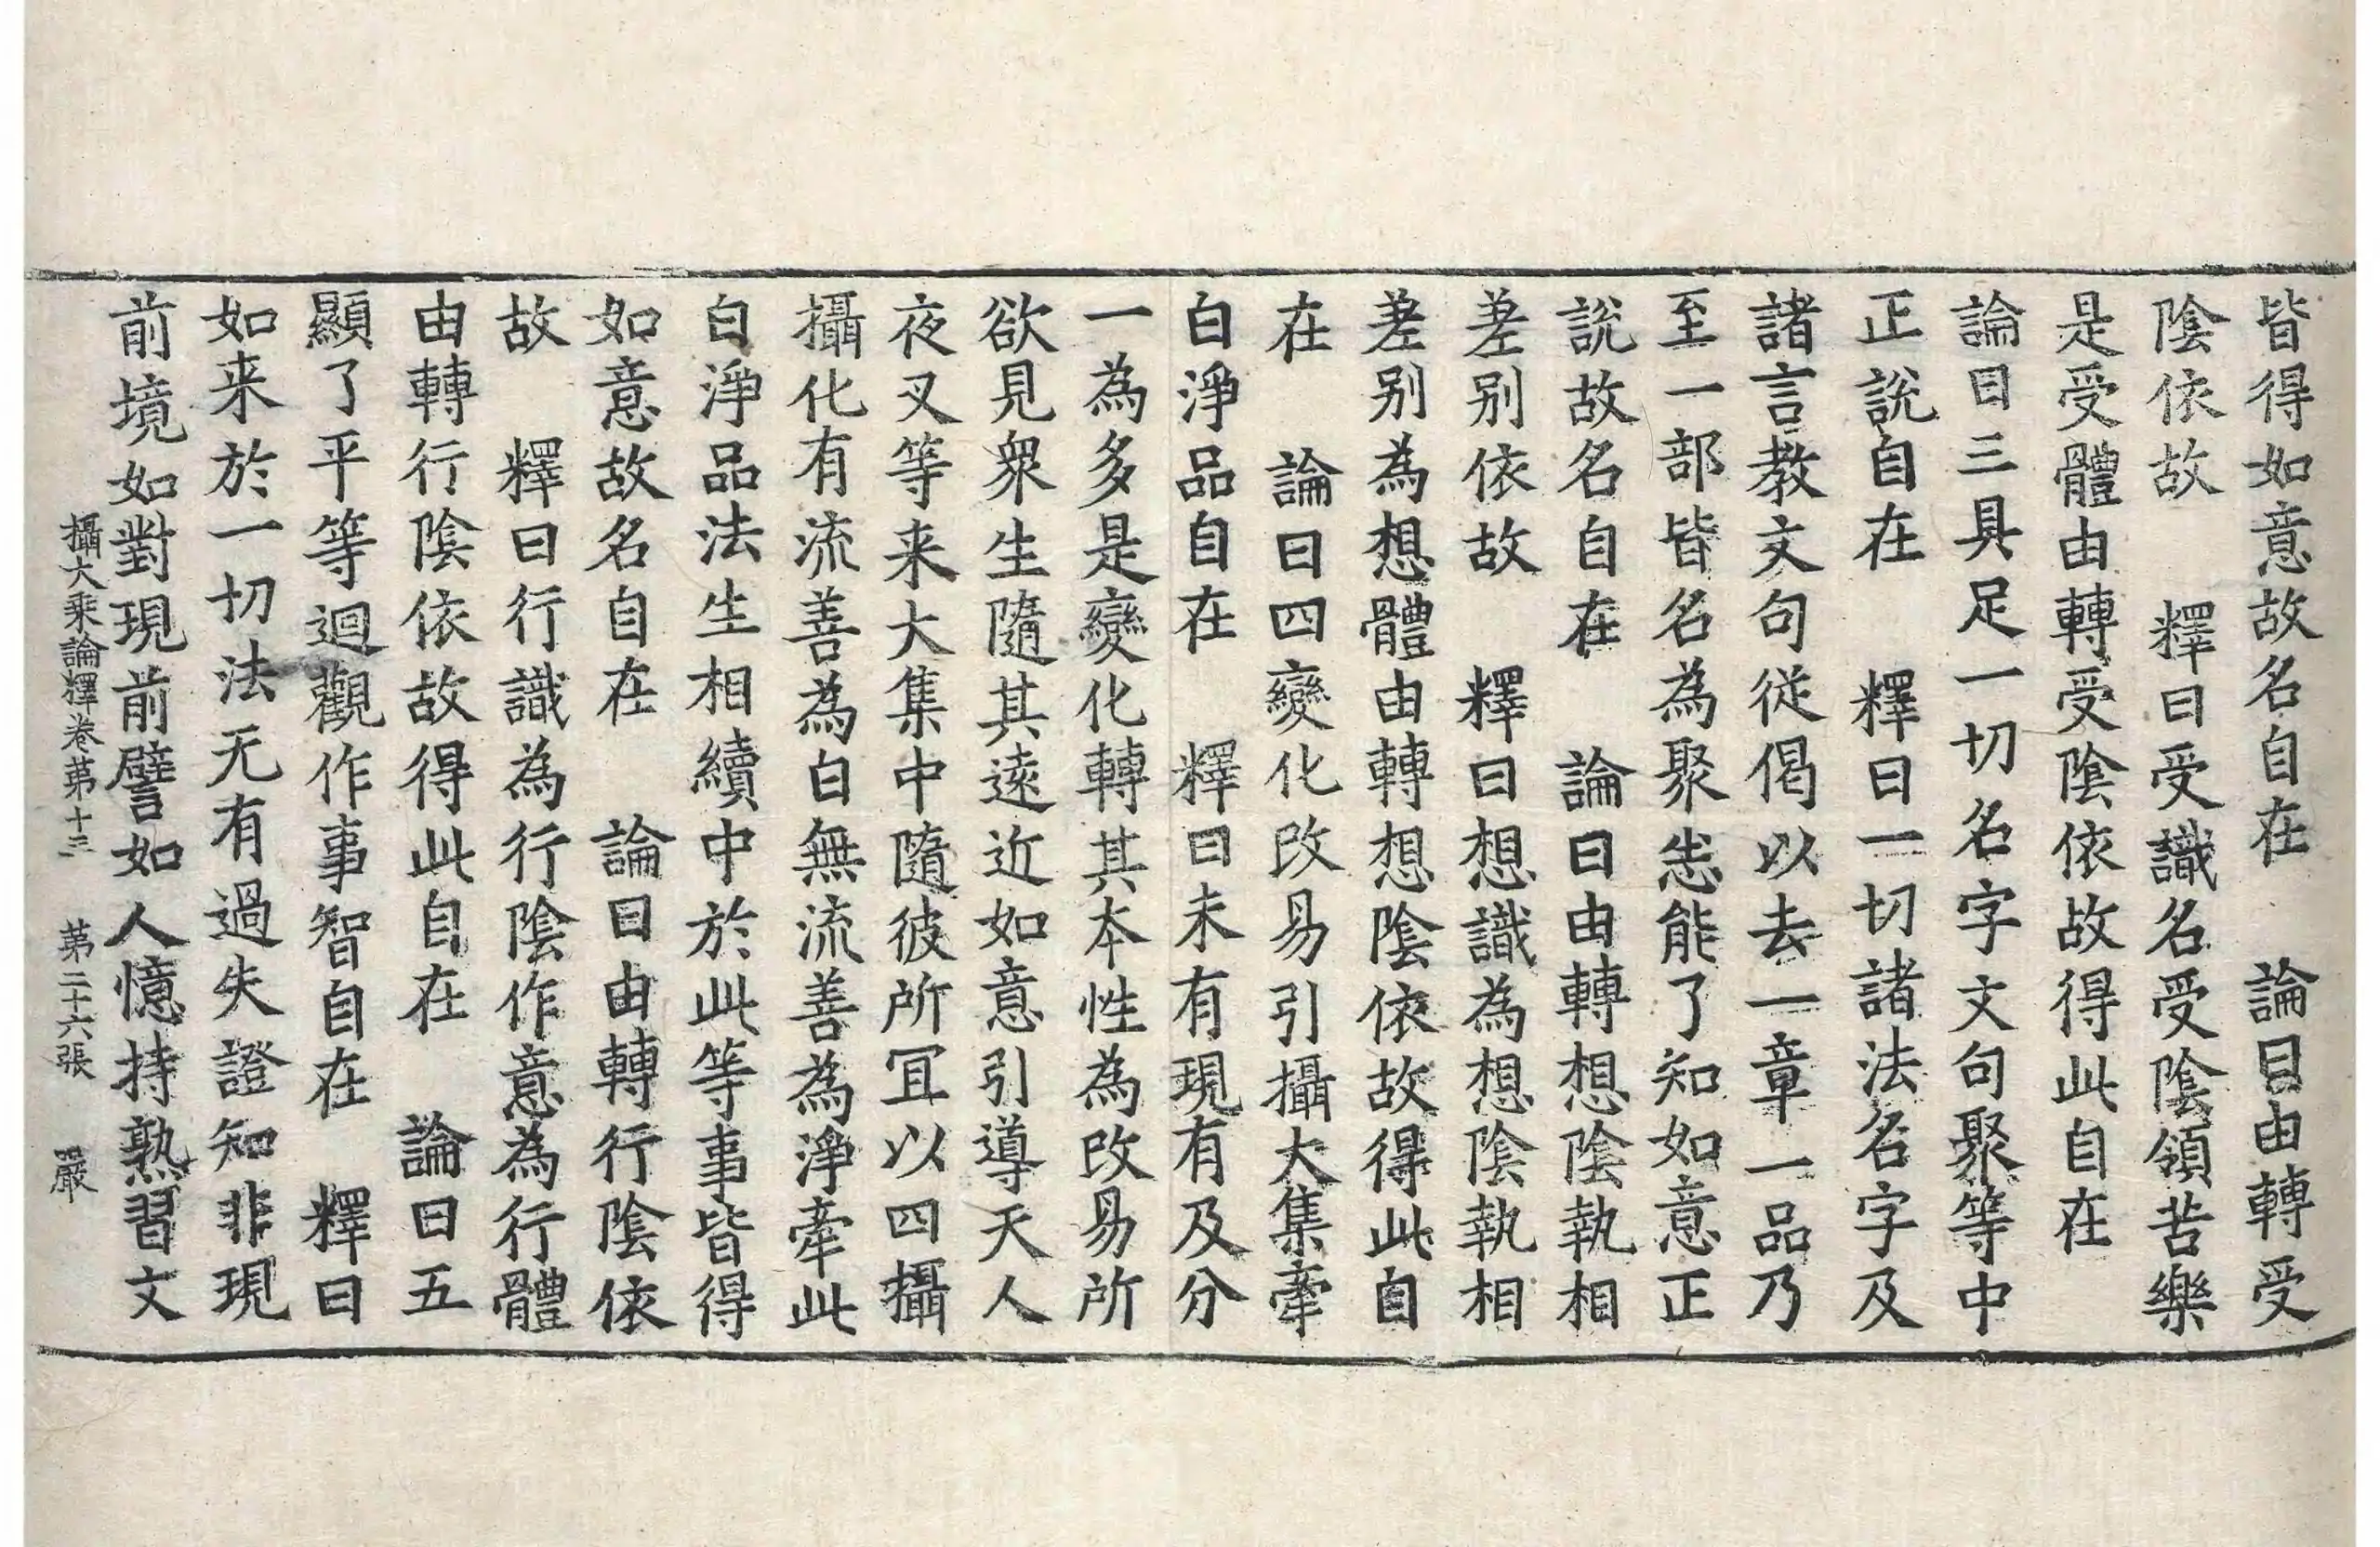 皆得如意故名自在　論曰由轉受
陰依故　釋曰受識名受陰領苦樂
是受體由轉受陰依故得此自在
論曰三具足一切名字文句聚等中
正說自在　釋曰一切諸法名字及
諸言教文句従偈以去一章一品乃
至一部皆名為聚悉能了知如意正
說故名自在　論曰由轉想陰執相
差别依故　釋曰想識為想陰執相
差别為想體由轉想陰依故得此自
在　論曰四變化改易引攝大集牽
白淨品自在　釋曰未有現有及分
一為多是變化轉其本性為改易所
欲見衆生隨其遠近如意引導天人
夜叉等来大集中隨彼所冝以四攝
攝化有流善為白無流善為淨牽此
白淨品法生相續中於此等事皆得
如意故名自在　論曰由轉行陰依
故　釋曰行識為行陰作意為行體
由轉行陰依故得此自在　論曰五
顯了平等迴觀作事智自在　釋曰
如来於一切法无有過失證知非現
前境如對現前譬如人憶持熟習文
攝大乘論釋卷第十三　第二十六張　嚴